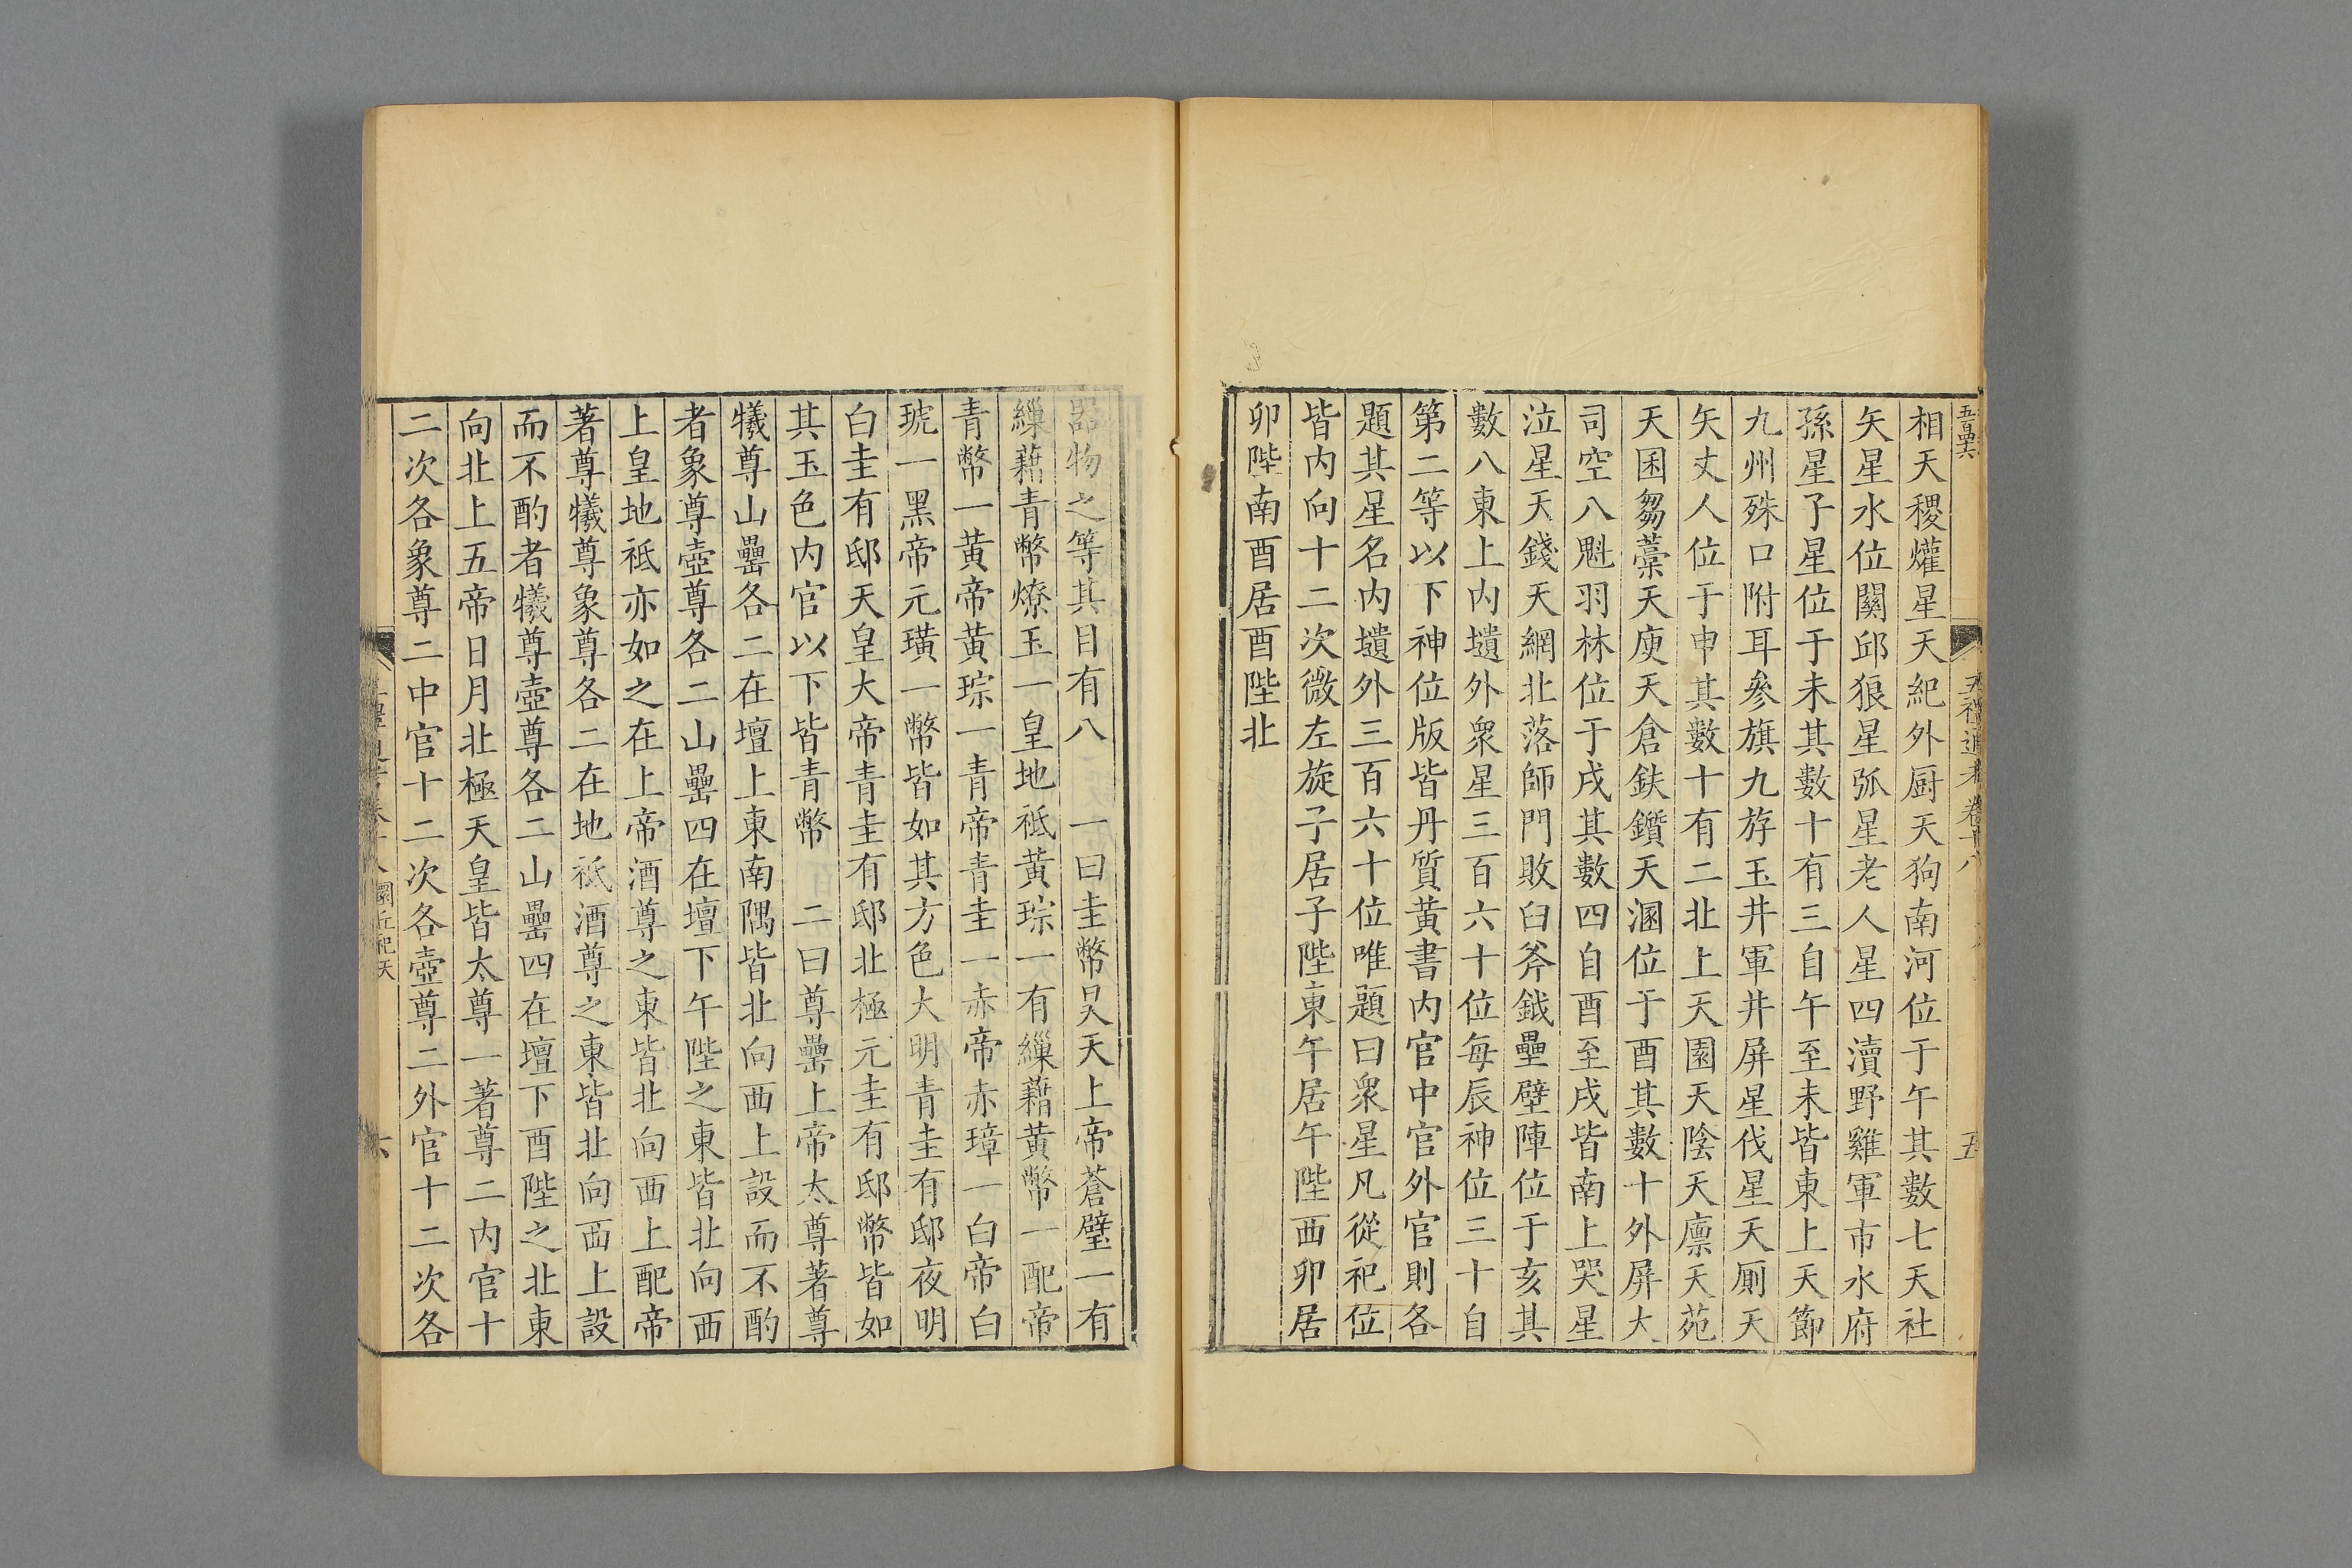 五禮通考 卷十八
五
相天稷爟星天紀外厨天狗南河位于午其數七天社
矢星水位闕邱狼星弧星老人星四瀆野雞軍市水府
孫星子星位于未其數十有三自午至未皆東上天節
九州殊口附耳參旗九斿玉井軍井屏星伐星天厠天
矢丈人位于申其數十有二北上天園天陰天廩天苑
天囷芻藁天庾天倉鈇鑕天溷位于酉其數十外屏大
司空八魁羽林位于戌其數四自酉至戌皆南上哭星
泣星天錢天網北落師門敗臼斧鉞壘壁陣位于亥其
數八東上內壝外衆星三百六十位每辰神位三十自
第二等以下神位版皆丹質黃書內官中官外官則各
題其星名內壝外三百六十位唯題曰衆星凡從祀位
皆內向十二次微左旋子居子陛東午居午陛西卯居
卯陛南酉居酉陛北
器物之等其目有八 一曰圭幣昊天上帝蒼璧一有
繅藉青幣燎玉一皇地祇黃琮一有繅藉黃幣一配帝
青幣一黃帝黃琮一青帝青圭一赤帝赤璋一白帝白
琥一黑帝元璜一幣皆如其方色大明青圭有邸夜明
白圭有邸天皇大帝青圭有邸北極元圭有邸幣皆如
其玉色內官以下皆青幣 二曰尊罍上帝太尊著尊
犧尊山罍各二在壇上東南隅皆北向西上設而不酌
者象尊壺尊各二山罍四在壇下午陛之東皆北向西
上皇地祇亦如之在上帝酒尊之東皆北向西上配帝
著尊犧尊象尊各二在地祇酒尊之東皆北向西上設
而不酌者犧尊壺尊各二山罍四在壇下酉陛之北東
向北上五帝日月北極天皇皆太尊一著尊二內官十
二次各象尊二中官十二次各壺尊二外官十二次各
圜丘祀天
六